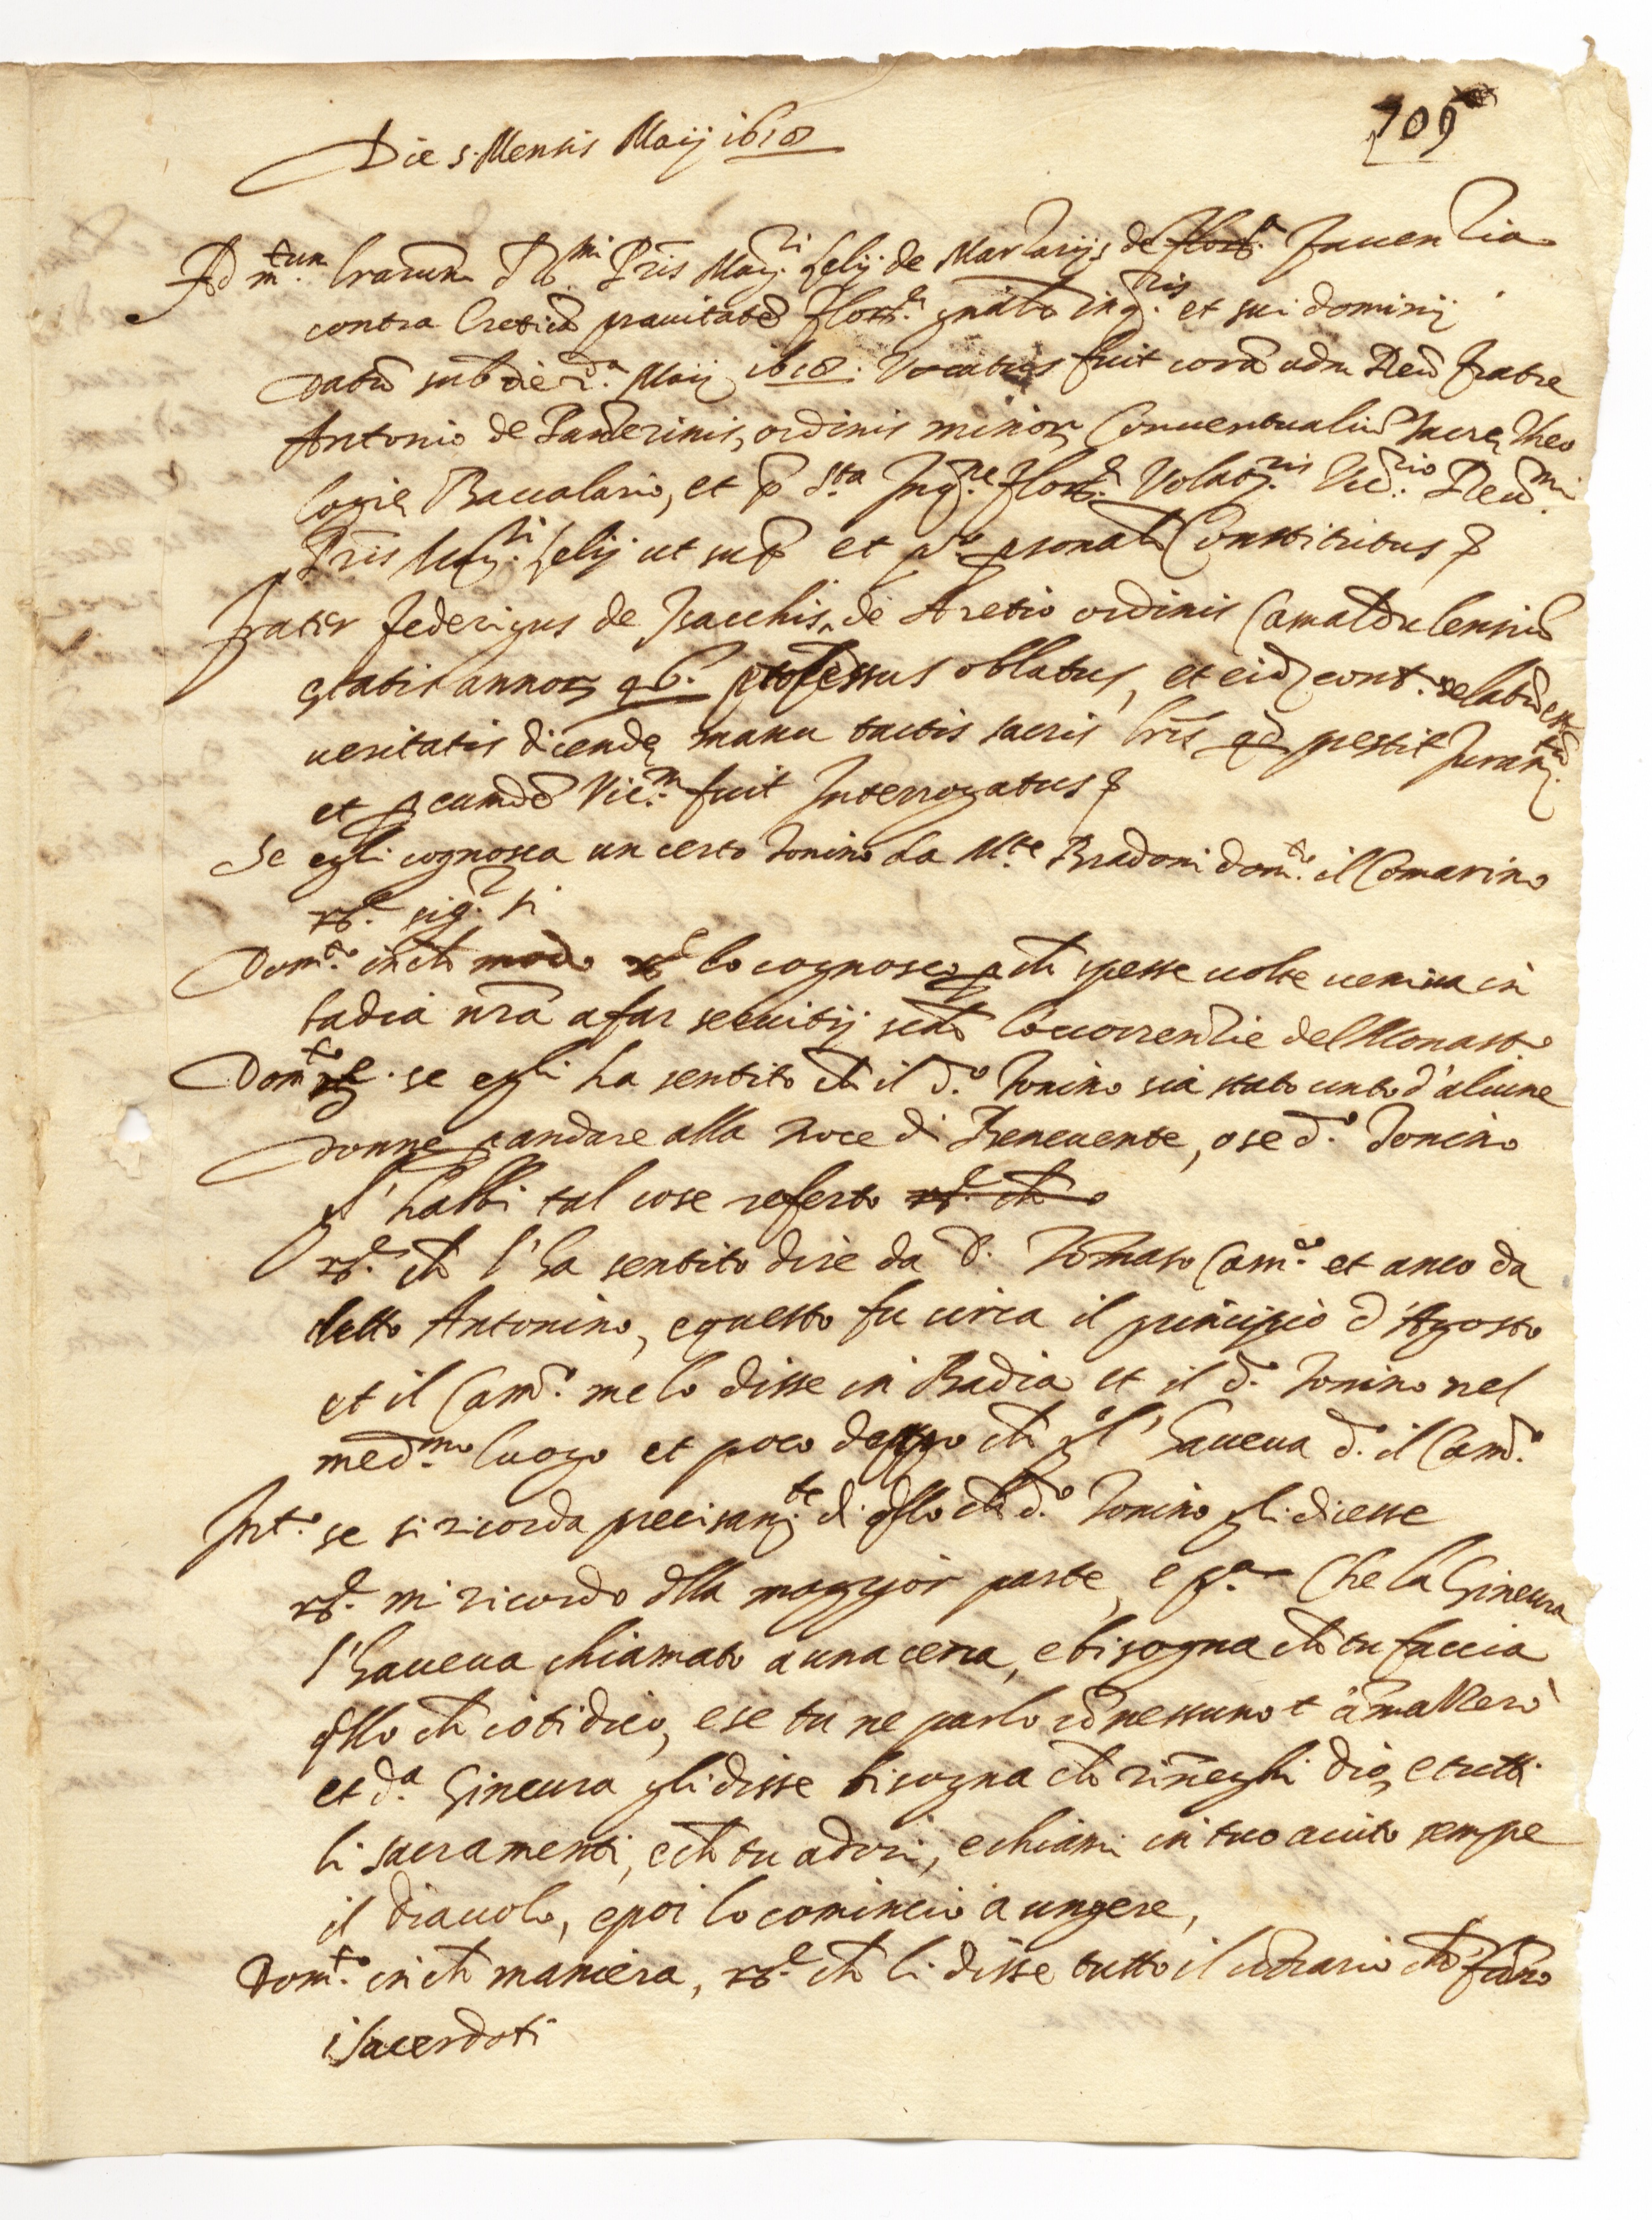 709
Die 5 Mensis Maij 1618
Ad m.tum lrarum R.mi Pris Mag.ri Lelij de Marzarijs de Flor.a Fauentia
contra heretica pravitate Flor.e gnalis inq.ris et sui dominij
datu sub die 2.a Maij 1618. Vocatus fuit cora adm Reu Fratre
Antonio de ordinis minor Conuentualiu Sacre Theo
logie Baccalario, et p S.ta Inq.ne Flor.e Volat.ris Vic.rio Reu.mi
Pris Mag.ri Lelij ut sup et p.o psonalr Constitutus
Frater Federigus de Isacchis de Aretio ordinis Camaldulensiu
etatis annor 46. professus oblatus, et eid delatu est
ueritatis dicende manu tactis sacris lris pestit Jura.tu
et p eumde Vic.m fuit Interrogatus
Se egli cognosca un certo Tonino da M.te Bradoni dom.to il Comarino
r.e sig.r si
Dom.to in ch modo r.e lo cognosco p ch spesse uolte ueniua in
badia nra a far seruitij secdo l'occorrentie del Monast.o
Dom.to se egli ha sentito ch il d.o Tonino sia stato unto d'alcune
donne p andare alla noce di Beneuente, o se d.o Tonino
l'habbi tal cose referto r.e ch
r.e ch l'ha sentito dire da D. Tomaso Cam.o et anco da
detto Antonino, e questo fu circa il principio d'Agosto
et il Cam.o me lo disse in Badia et il d.o Tonino nel
med.mo luogo et poco doppo ch l'haueua d.o il Cam.o
Int.o se si ricorda precisam.te di qllo ch d.o Tonino gli dicesse
r.e mi ricordo dlla maggior parte, e p.a Che la Gineura
l'haueua chiamato a una cena, e bisogna ch tu faccia
qllo ch io ti dico, e se tu ne parlo co nessuno t'amazzero
et d.a Gineura gli disse bisogna ch rineghi dio, e tutti
li sacramenti, e ch tu adori, e chiami in tuo aiuto sempe
il diauolo, e poi lo cominciò a ungere,
Dom.to in ch maniera, r.e ch li disse tutto il cotrario ch fano
i sacerdoti